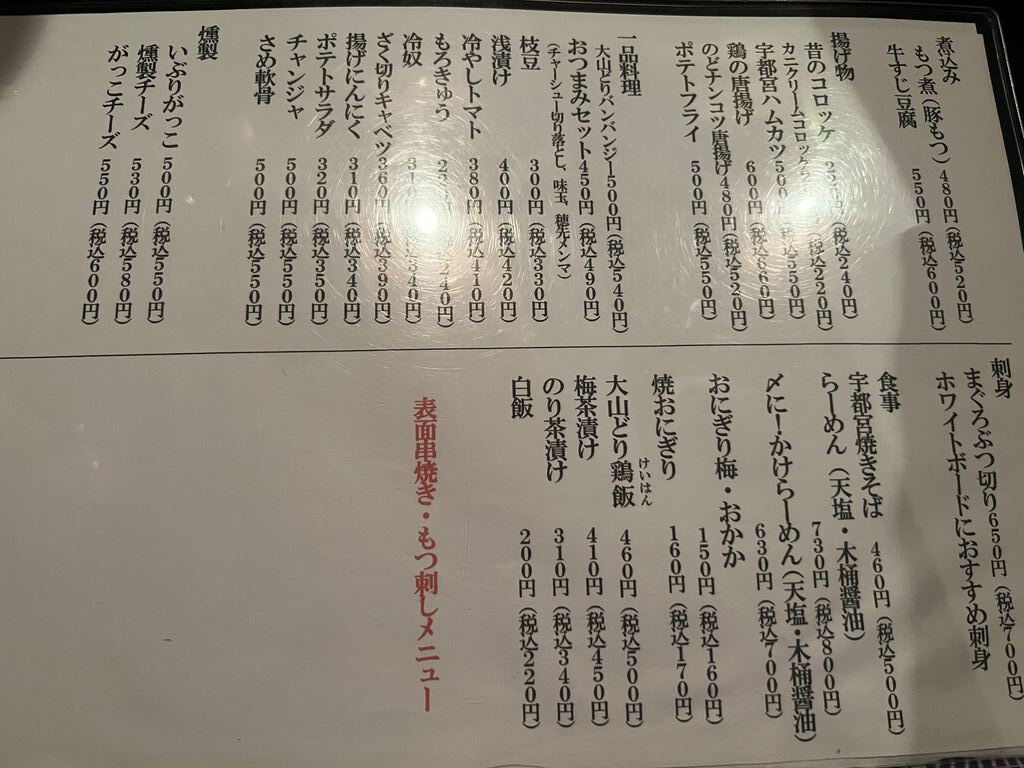 煮込み
もつ煮(豚もつ)480円(税込520円)
牛すじ豆腐 550円(税込600円)
揚げ物
昔のコロッケ 円(税込240円)
カニクリームコロッケ 円(税込220円)
宇都宮ハムカツ 円(税込550円)
鶏の唐揚げ 600円(税込660円)
のどナンコツ唐揚げ480円(税込520円)
ポテトフライ 500円(税込550円)
一品料理
大山どりバンバンジー500円(税込540円)
おつまみセット450円(税込490円)
(チャーシュー切り落とし、味玉、穂先メンマ)
枝豆 300円(税込330円)
浅漬け 400円(税込420円)
冷やしトマト 380円(税込410円)
もろきゅう (税込240円)
冷奴 310円(税込340円)
ざく切りキャベツ360円(税込390円)
揚げにんにく 310円(税込340円)
ポテトサラダ 320円(税込350円)
チャンジャ 500円(税込550円)
さめ軟骨 500円(税込550円)
燻製
いぶりがっこ 500円(税込550円)
燻製チーズ 530円(税込580円)
がっこチーズ 550円(税込600円)
刺身
まぐろぶつ切り650円(税込700円)
ホワイトボードにおすすめ刺身
食事
宇都宮焼きそば 460円(税込500円)
らーめん(天塩・木桶醤油)
730円(税込800円)
〆に!かけらーめん(天塩・木桶醤油)
630円(税込700円)
おにぎり梅・おかか
150円(税込160円)
焼おにぎり 160円(税込170円)
大山どり鶏飯 460円(税込500円)
けいはん
梅茶漬け 410円(税込450円)
のり茶漬け 310円(税込340円)
白飯 200円(税込220円)
表面串焼き・もつ刺しメニュー